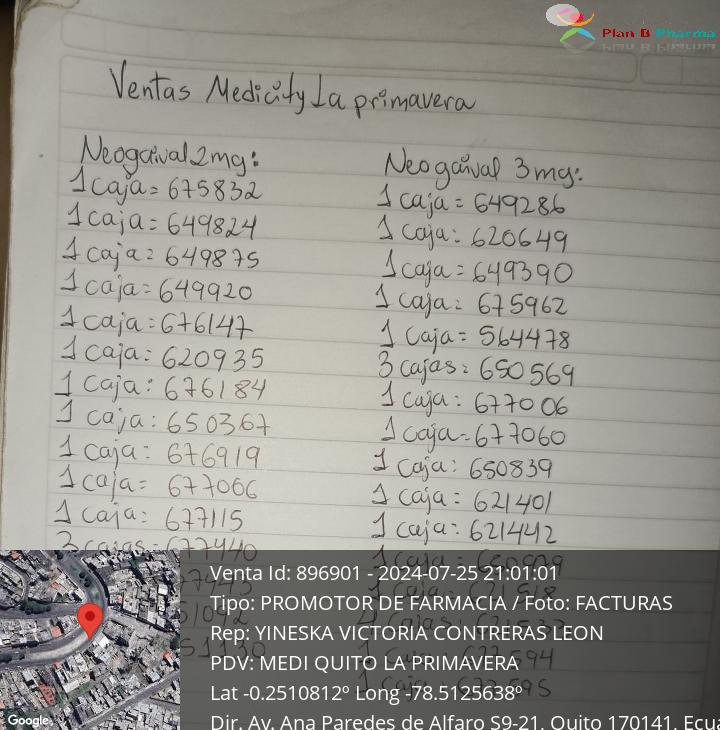 Plan B Pharma
Ventas Medicity La primavera
Neogaival 2mg:
1 caja = 675832
1 caja = 649824
1 caja = 649875
1 caja = 649920
1 caja = 676147
1 caja: 620935
1 caja: 676184
1 caja: 650367
1 caja: 676919
1 caja = 677066
1 caja: 677115
3 cajas = 677440
Neogaival 3mg:
1 caja = 649286
1 caja: 620649
1 caja = 649390
1 caja: 675962
1 caja = 564478
3 cajas: 650569
1 caja: 677006
1 caja = 677060
1 caja: 650839
1 caja = 621401
1 caja: 621442
Venta Id: 896901 - 2024-07-25 21:01:01
Tipo: PROMOTOR DE FARMACIA / Foto: FACTURAS
Rep: YINESKA VICTORIA CONTRERAS LEON
PDV: MEDI QUITO LA PRIMAVERA
Lat -0.2510812º Long -78.5125638º
Dir. Av. Ana Paredes de Alfaro S9-21, Quito 170141, Ecua
Google